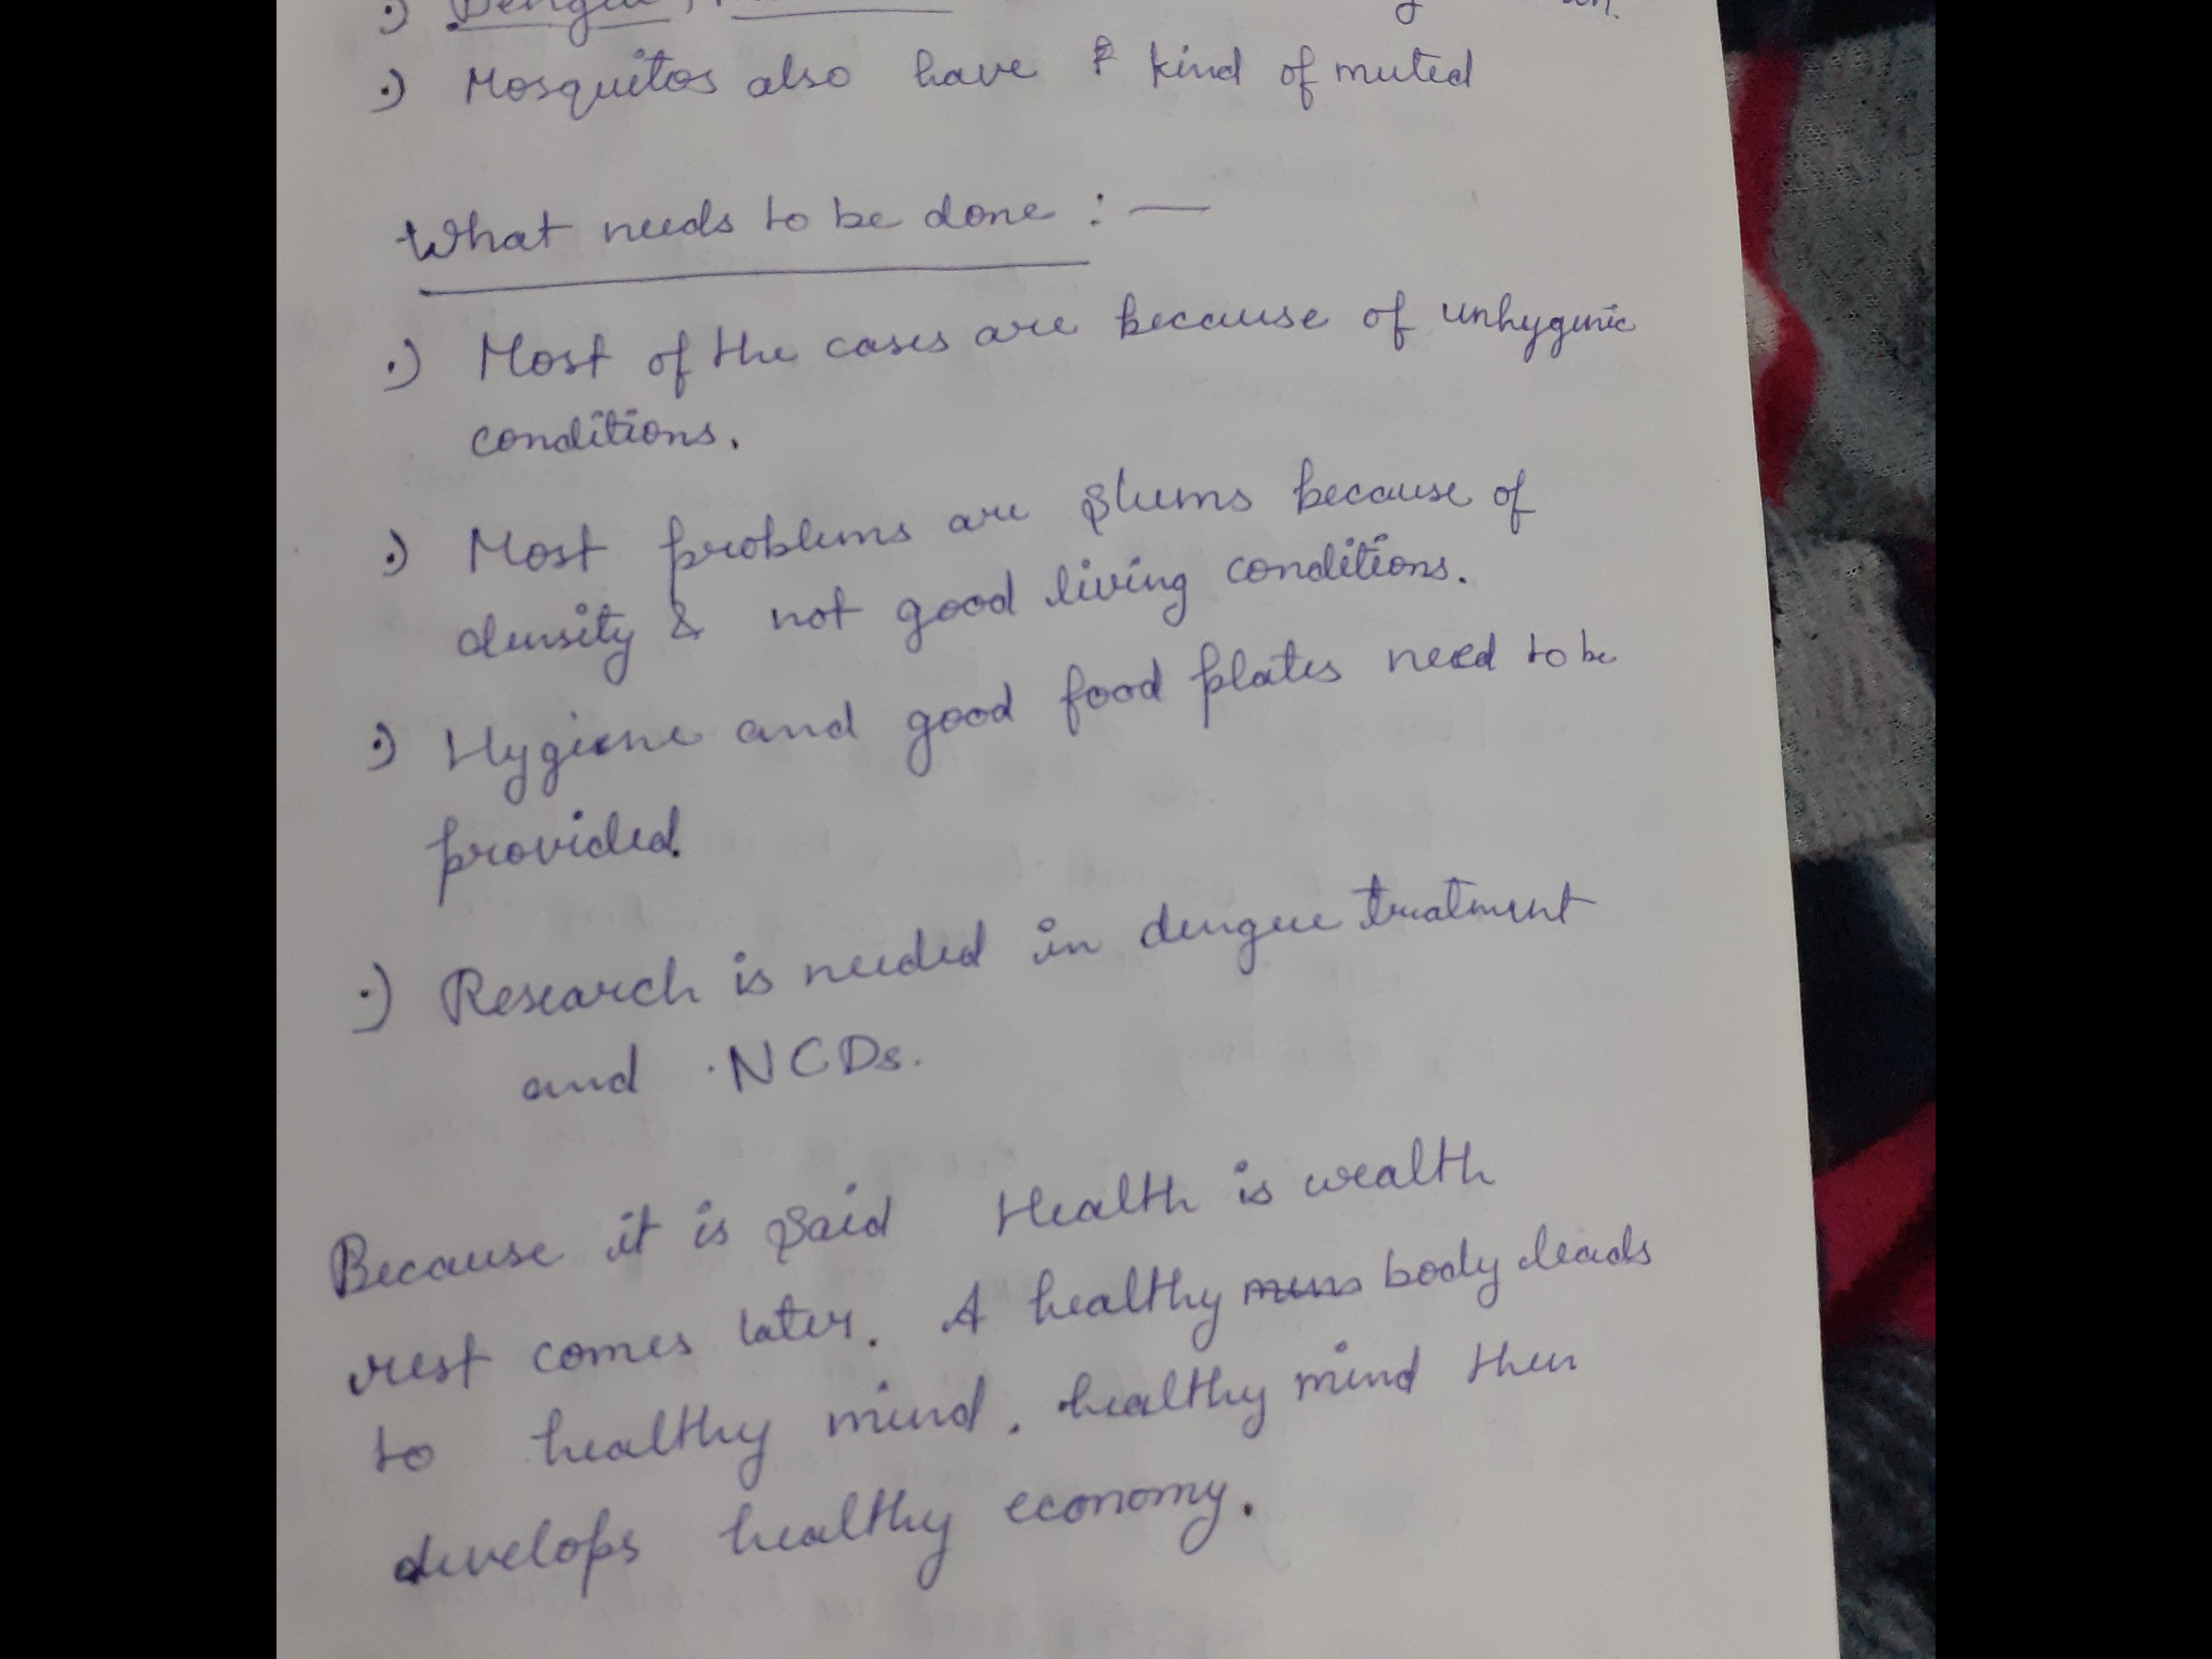 ·) Dengue,
·) Mosquitos also have kind of muted
What needs to be done : —
·) Most of the cases are because of unhygenic
conditions.
·) Most problems are slums because of
density & not good living conditions.
·) Hygiene and good food plates need to be
provided.
·) Research is needed in dengue treatment
and NCDs.
Because it is said Health is wealth
rest comes later. A healthy body leads
to healthy mind. healthy mind then
develops healthy economy.